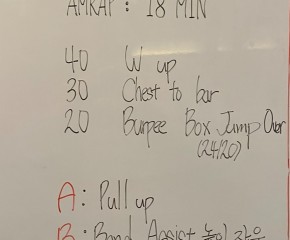 AMRAP : 18 MIN
40 W up
30 Chest to bar
20 Burpee Box Jump Over
(24/20)
A : Pull up
B : Band Assist 높이 같음